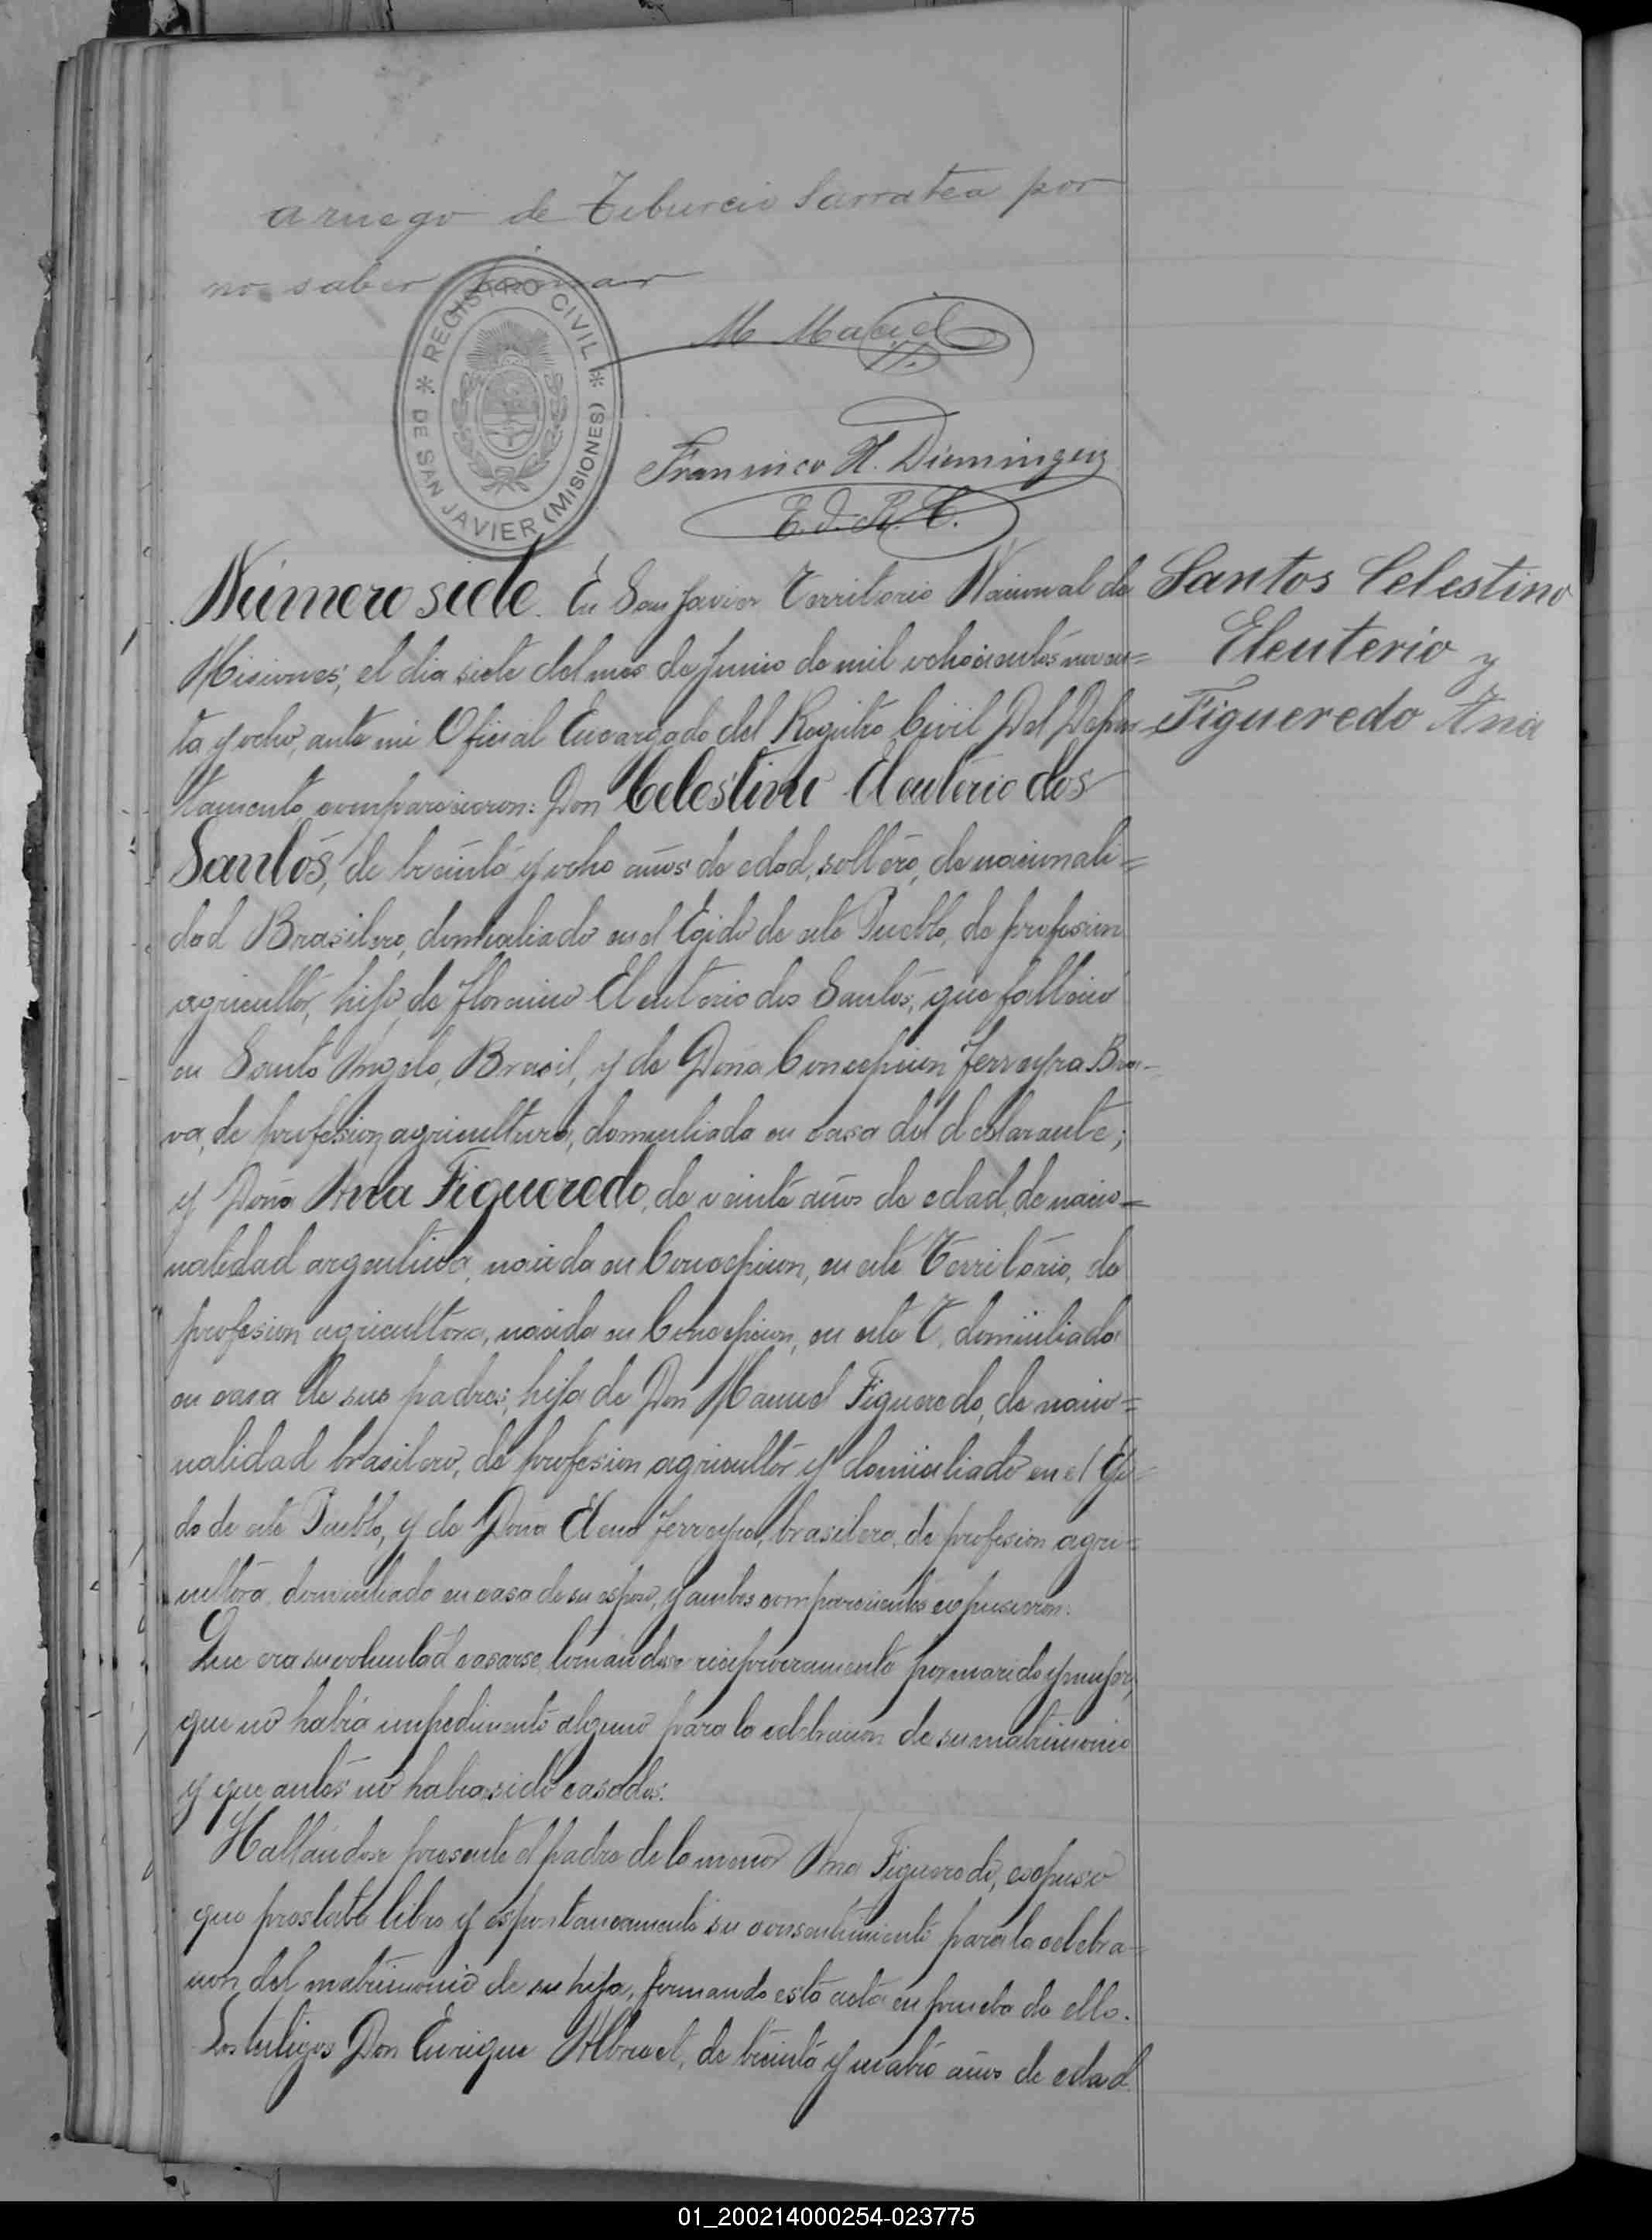 a ruego de Tiburcio Sarratea por
no saber firmar
M Maciel
REGISTRO CIVIL
DE SAN JAVIER (MISIONES)
Francisco H. Dieminguez
E. d. R. C.
Número siete. En San Javier Territorio Nacional de
Misiones, el dia siete del mes de Junio de mil ochocientos noven=
ta y ocho, ante mi Oficial Encargado del Registro Civil Del Depar=
tamento comparecieron: Don Celestino Eleuterio dos
Santos, de treinta y ocho años de edad, soltero, de nacionali=
dad Brasilero, domiciliado en el Egido de este Pueblo, de profesion
agricultor, hijo de Florencio Eleuterio dos Santos, que fallecio
en Santo Angelo, Brasil, y de Doña Concepcion Ferreyra
de profesion agricultora, domiciliada en casa del declarante;
y Doña Ana Figueredo, de veinte años de edad, de nacio=
nalidad argentina, nacida en Concepcion, en este Territorio, de
profesion agricultora, nacida en Concepcion, en este T. domiciliada
en casa de sus padres; hija de Don Manuel Figueredo, de nacio=
nalidad brasilero, de profesion agricultor y domiciliado en el Egi=
do de este Pueblo, y de Doña Elena Ferreyra, brasilera, de profesion agri=
cultora, domiciliada en casa de su esposo, y ambos comparecientes expusieron:
Que era su voluntad casarse, tomandose reciprocamente por marido y mujer,
que no habia impedimento alguno para la celebracion de su matrimonio
y que antes no habia sido casados.
Hallándose presente el padre de la menor Ana Figueredo, expuso
que prestaba libre y espontaneamente su consentimiento para la celebra=
cion del matrimonio de su hija, firmando esta acta en prueba de ello.
Los testigos Don Enrique de treinta y cuatro años de edad
Santos Celestino
Eleuterio y
Figueredo Ana
01_200214000254-023775